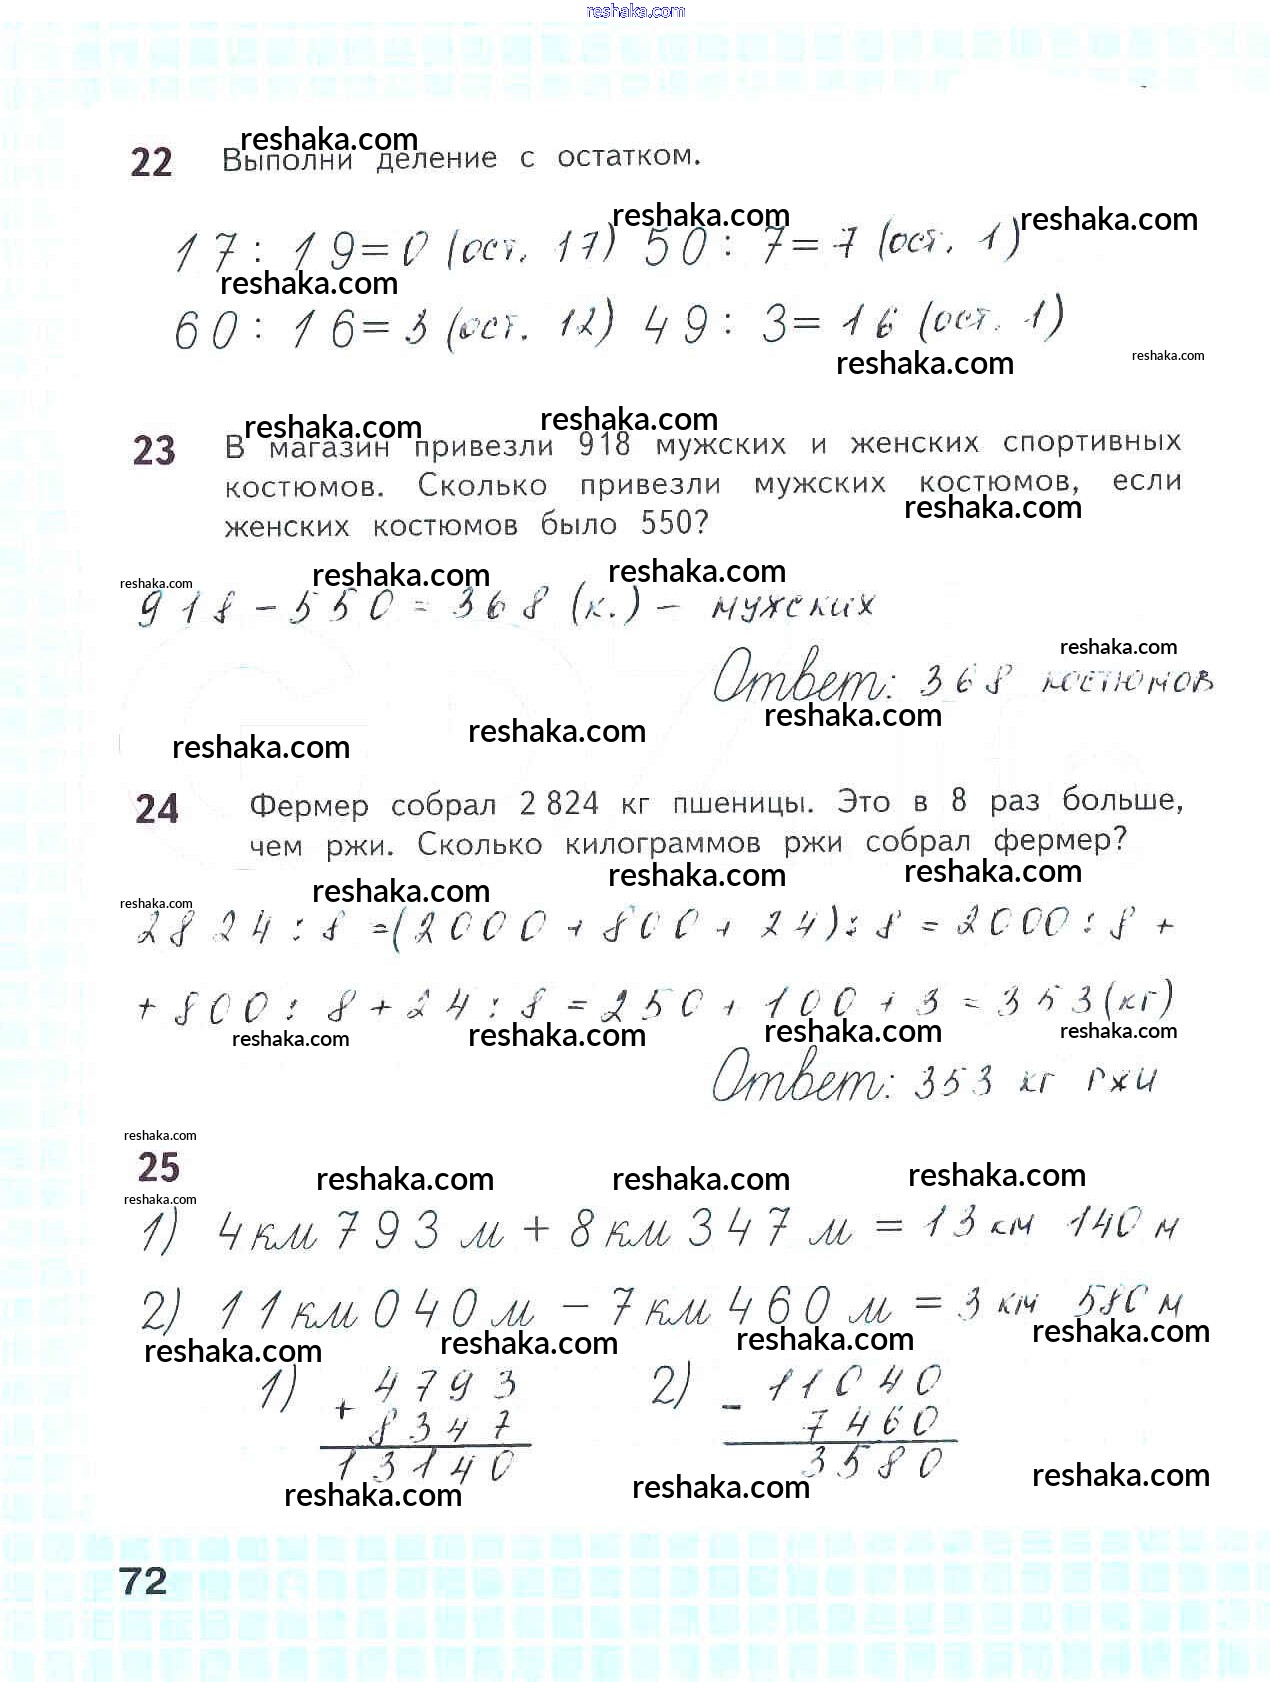 reshaka.com
reshaka.com
22 Выполни деление с остатком.
reshaka.com reshaka.com
17 : 19 = 0 (ост. 17) 50 : 7 = 7 (ост. 1)
reshaka.com
60 : 16 = 3 (ост. 12) 49 : 3 = 16 (ост. 1)
reshaka.com reshaka.com
reshaka.com reshaka.com
23 В магазин привезли 918 мужских и женских спортивных
костюмов. Сколько привезли мужских костюмов, если
reshaka.com
женских костюмов было 550?
reshaka.com reshaka.com reshaka.com
918 - 550 = 368 (к.) - мужских
reshaka.com
Ответ: 368 костюмов
reshaka.com reshaka.com reshaka.com
24 Фермер собрал 2 824 кг пшеницы. Это в 8 раз больше,
чем ржи. Сколько килограммов ржи собрал фермер?
reshaka.com reshaka.com reshaka.com reshaka.com
2824 : 8 = (2000 + 800 + 24) : 8 = 2000 : 8 +
+ 800 : 8 + 24 : 8 = 250 + 100 + 3 = 353 (кг)
reshaka.com reshaka.com reshaka.com reshaka.com
Ответ: 353 кг ржи
reshaka.com
25
reshaka.com reshaka.com reshaka.com reshaka.com
1) 4 км 793 м + 8 км 347 м = 13 км 140 м
2) 11 км 040 м - 7 км 460 м = 3 км 580 м
reshaka.com reshaka.com reshaka.com reshaka.com
1) + 4793 2) - 11040
8347 7460
13140 3580
reshaka.com reshaka.com reshaka.com
72